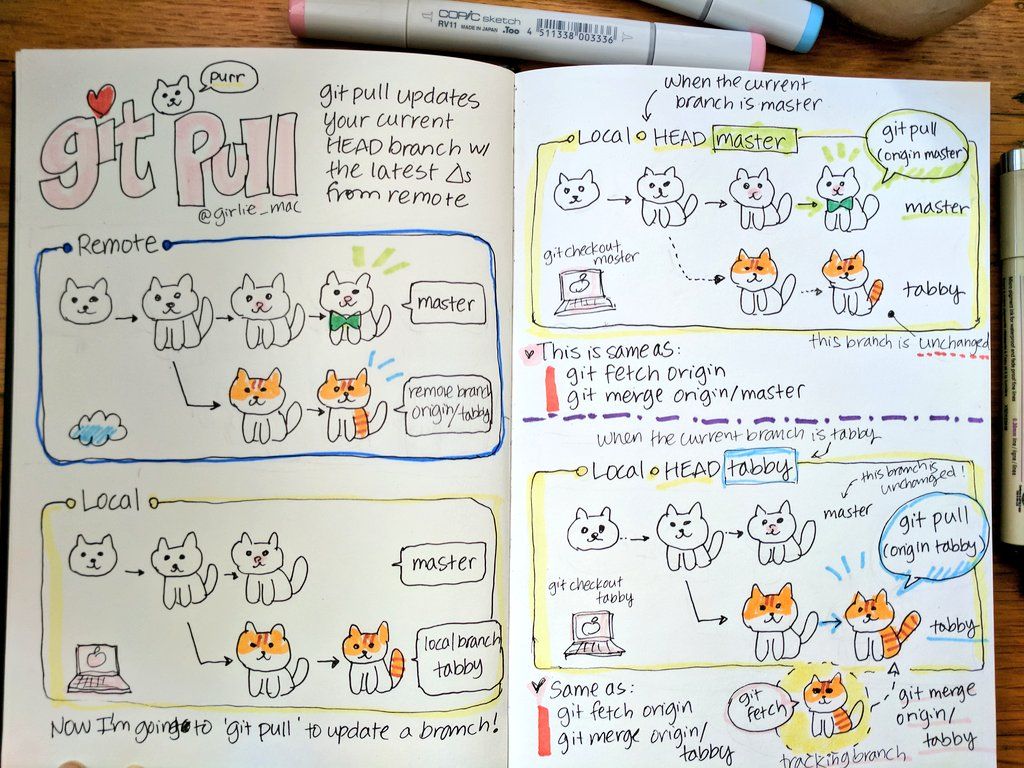 COPIC sketch
RV11 MADE IN JAPAN .Too
4 511338 003336
purr
git pull
@girlie_mac
git pull updates
your current
HEAD branch w/
the latest Δs
from remote
Remote
master
remote branch
origin/tabby
Local
master
local branch
tabby
Now I'm going to 'git pull' to update a branch!
When the current
branch is master
Local HEAD master
git pull
(origin master)
master
git checkout
master
tabby
this branch is unchanged
This is same as:
git fetch origin
git merge origin/master
when the current branch is tabby
Local HEAD tabby
this branch is
unchanged!
master
git pull
(origin tabby)
git checkout
tabby
tabby
Same as:
git fetch origin
git merge origin/
tabby
git
fetch
git merge
origin/
tabby
tracking branch